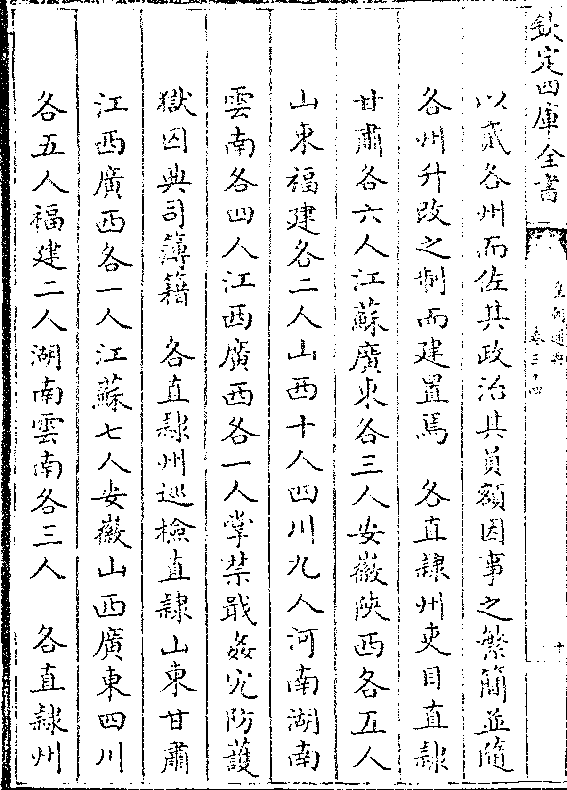 欽定四庫全書
皇朝通典
卷三十四
十
以貳各州而佐其政治其員額因事之繁簡並隨
各州升改之制而建置焉　各直隸州吏目直隸
甘肅各六人江蘇廣東各三人安徽陝西各五人
山東福建各二人山西十人四川九人河南湖南
雲南各四人江西廣西各一人掌禁戢姦宄防護
獄囚典司簿籍　各直隸州巡檢直隸山東甘肅
江西廣西各一人江蘇七人安徽山西廣東四川
各五人福建二人湖南雲南各三人　各直隸州